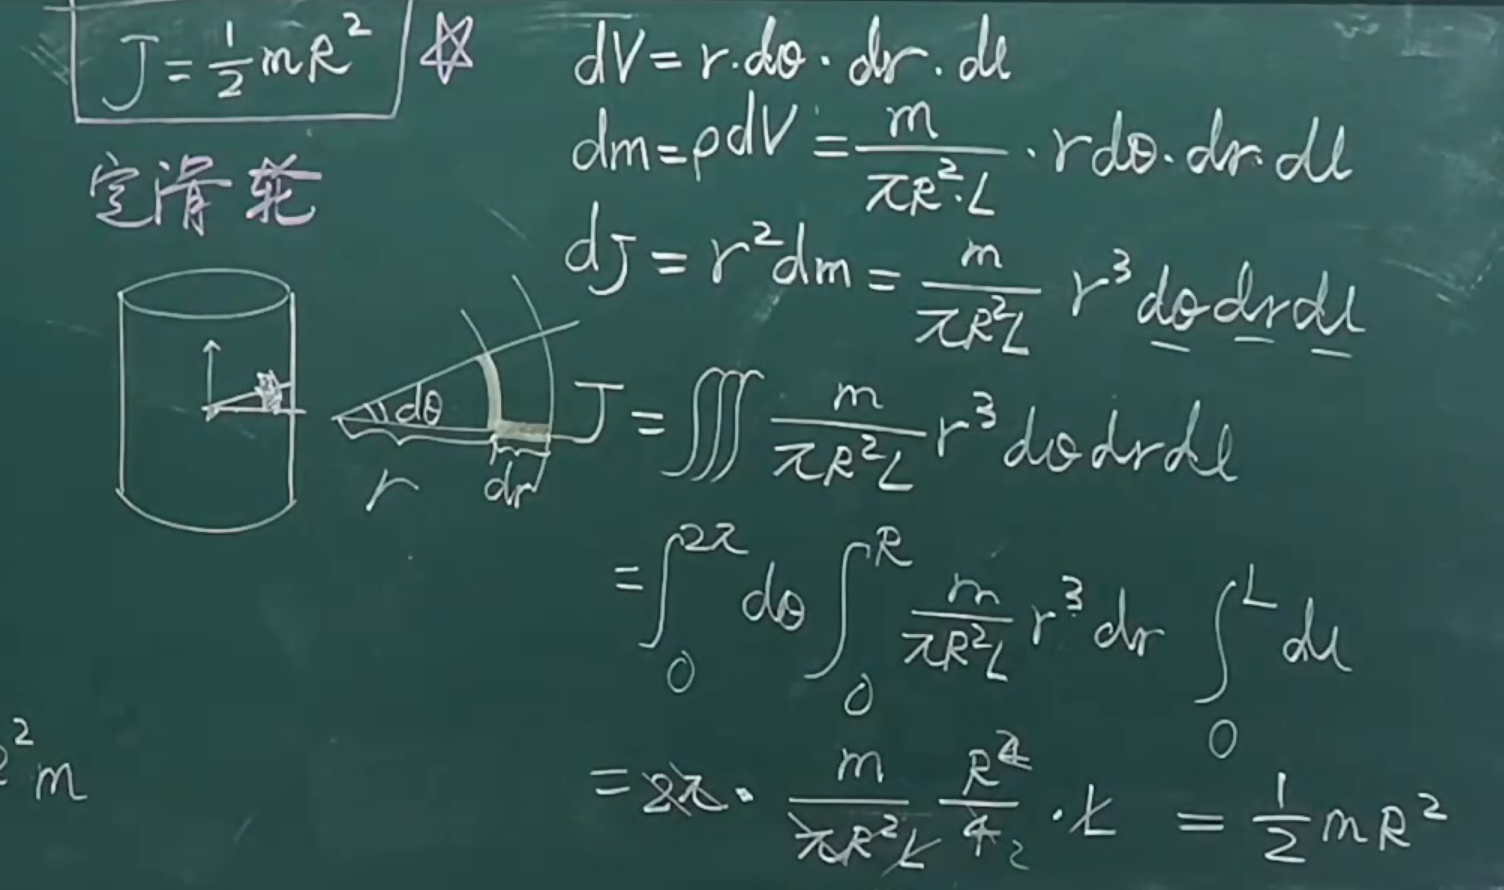 J = 1/2 mR²
定滑轮
dθ
r
dr
²m
dV = r·dθ·dr·dl
dm = ρdV = m/(πR²·L) · rdθ·dr·dl
dJ = r²dm = m/(πR²L) r³ dθ dr dl
J = ∭ m/(πR²L) r³ dθ dr dl
= ∫₀^2π dθ ∫₀^R m/(πR²L) r³ dr ∫₀^L dl
= 2π · m/(πR²L) R⁴/4 2 · L = 1/2 mR²